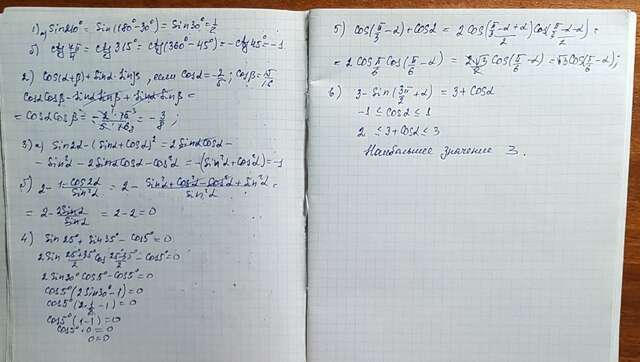 1) а) Sin210° = Sin(180°-30°) = Sin30° = 1/2
б) ctg 7π/4 = ctg 315° = ctg(360°-45°) = -ctg45° = -1
2) Cos(α+β) + Sinα·Sinβ, если Cosα = -2/5; Cosβ = 15/16
CosαCosβ - SinαSinβ + SinαSinβ =
= CosαCosβ = - 2·15/5·16 = -3/8;
3) а) Sin2α - (Sinα + Cosα)² = 2SinαCosα -
- Sin²α - 2SinαCosα - Cos²α = -(Sin²α + Cos²α) = -1
2 - 1-Cos2α/Sin²α = 2 - Sin²α + Cos²α - Cos²α + Sin²α/Sin²α =
= 2 - 2Sin²α/Sin²α = 2 - 2 = 0
4) Sin25° + Sin35° - Cos5° = 0
2Sin 25°+35°/2 Cos 25°-35°/2 - Cos5° = 0
2Sin30°Cos5° - Cos5° = 0
Cos5°(2Sin30° - 1) = 0
Cos5°(2·1/2 - 1) = 0
Cos5°(1-1) = 0
Cos5°·0 = 0
0 = 0
5) Cos(π/3 - α) + Cosα = 2Cos(π/3-α+α/2)Cos(π/3-α-α/2) =
= 2Cos π/6 Cos(π/6 - α) = 2√3/2 Cos(π/6 - α) = √3Cos(π/6 - α);
6) 3 - Sin(3π/2 + α) = 3 + Cosα
-1 ≤ Cosα ≤ 1
2 ≤ 3 + Cosα ≤ 3
Наибольшее значение 3.